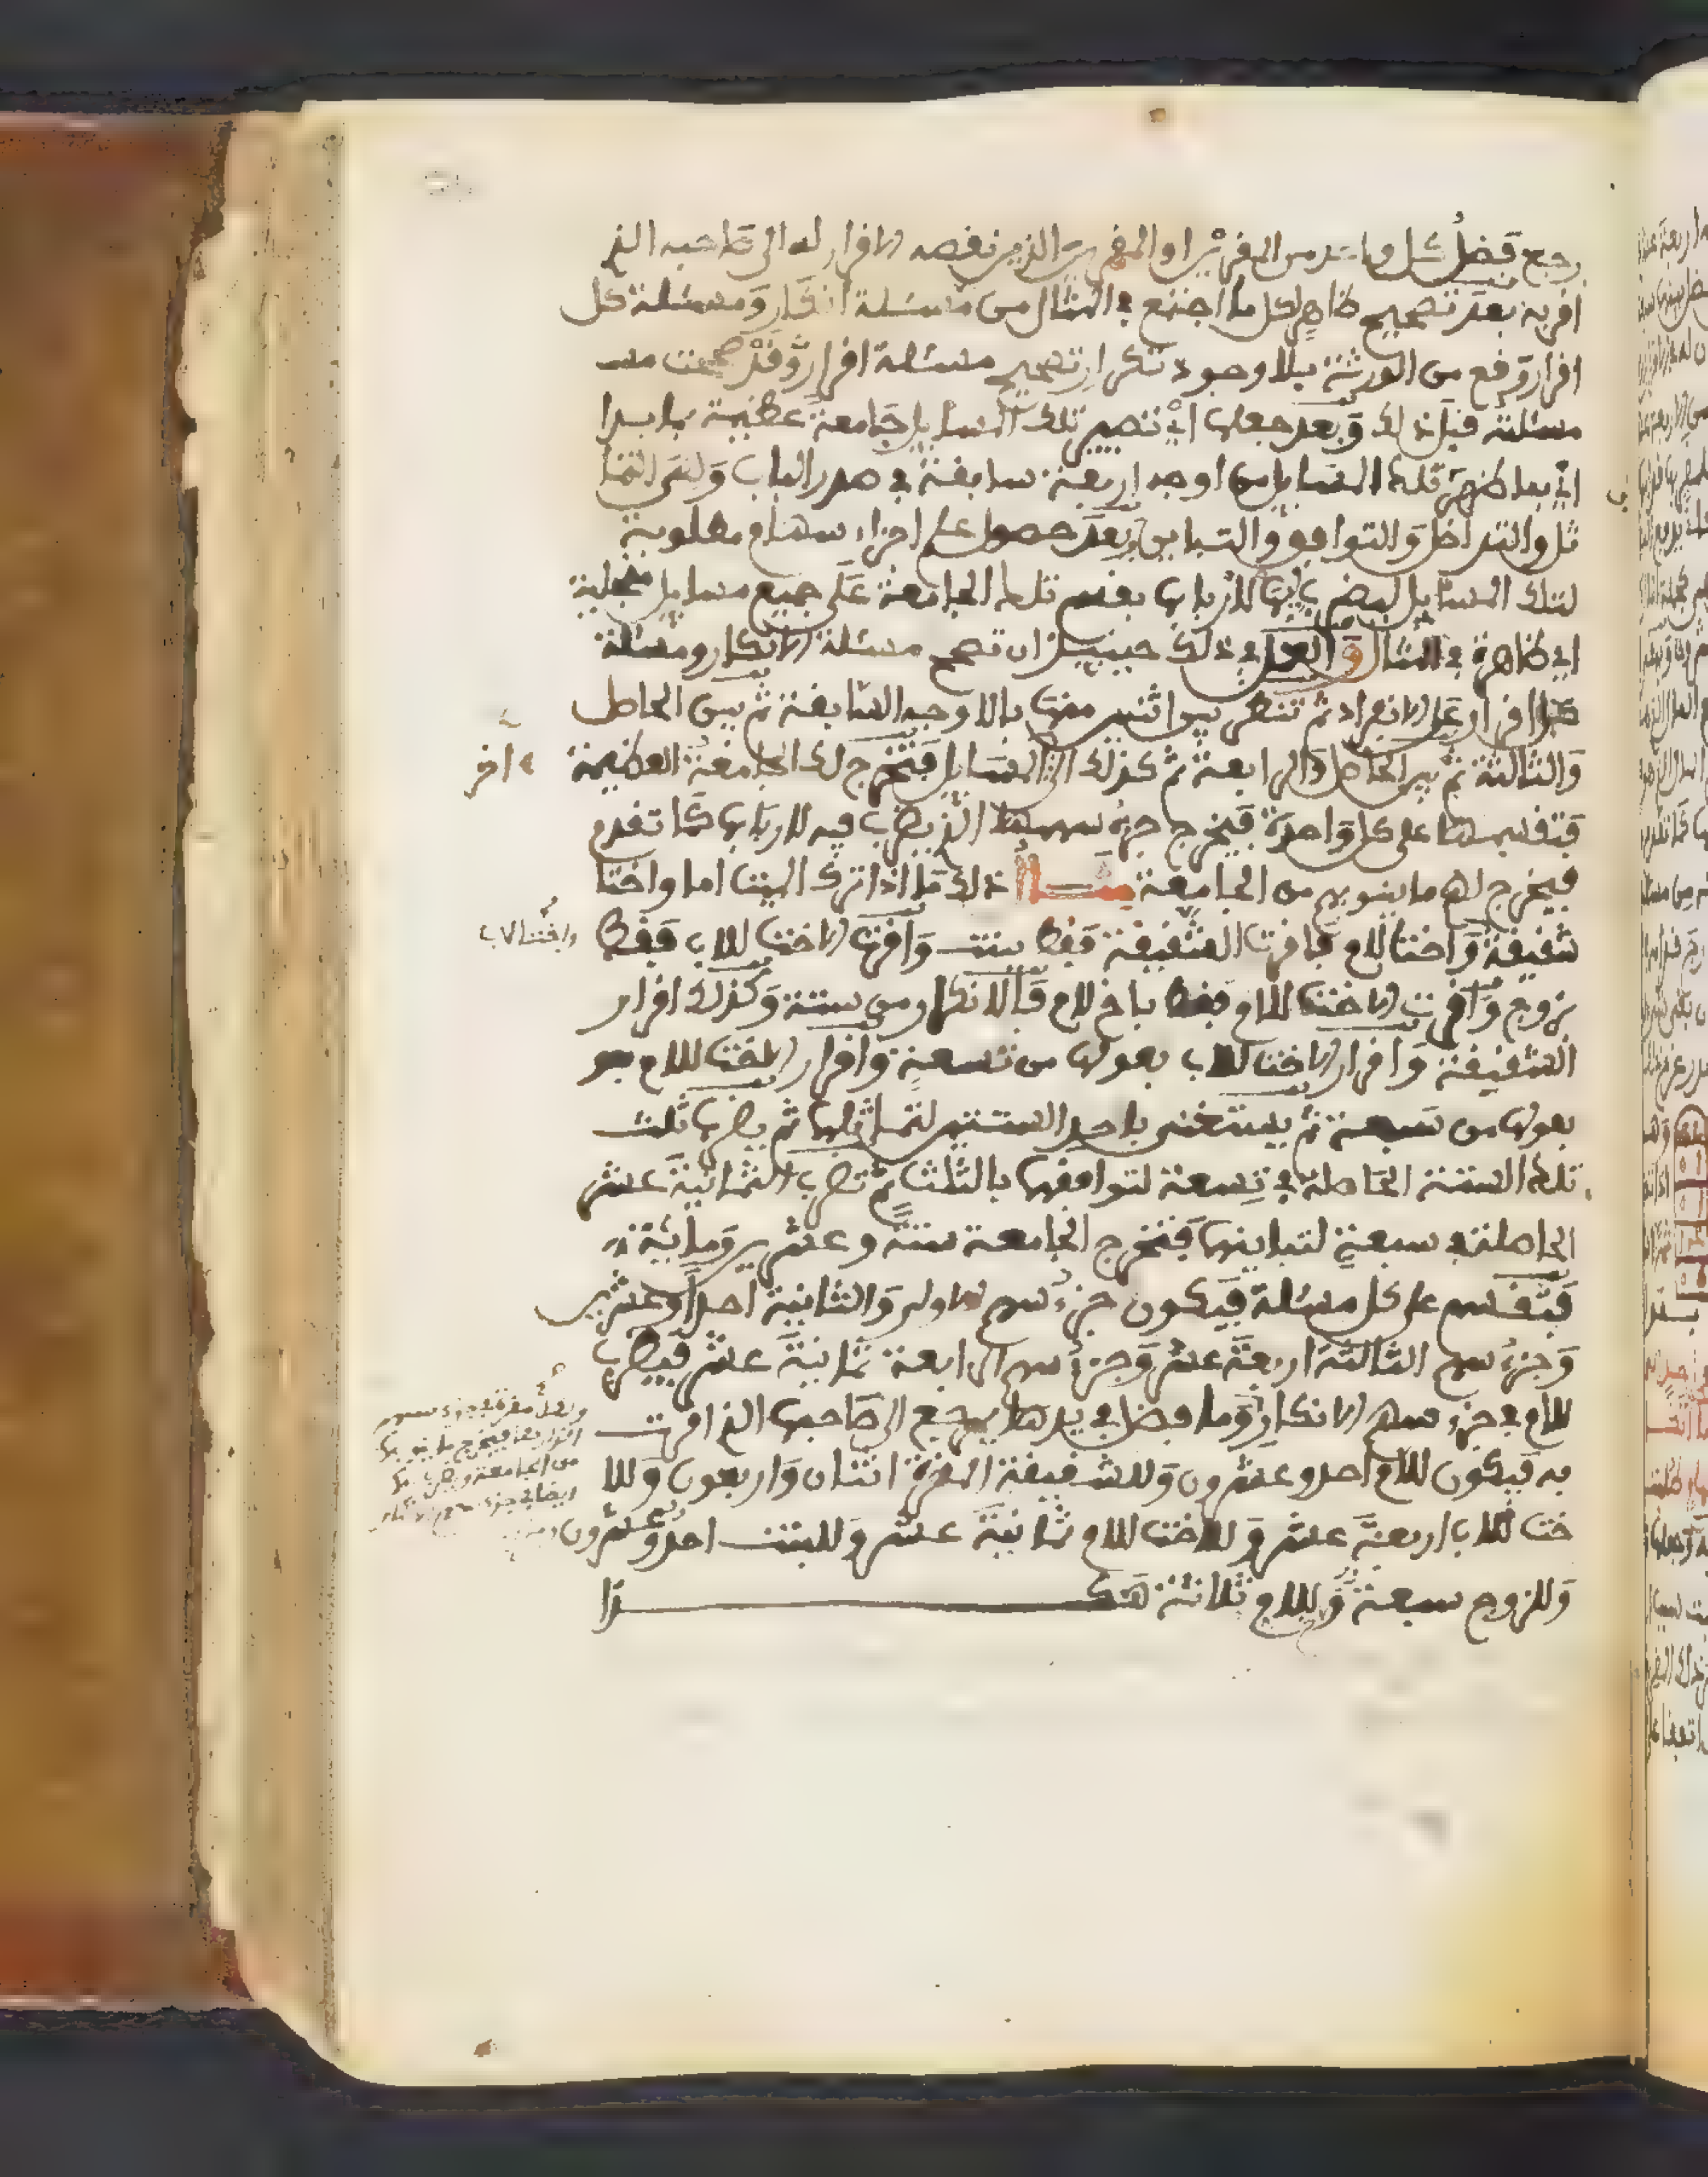 رجع فضل كل واحد من المقرين او المقرين الذين نقصه الاقرار له الى صاحبه الذي
اقر به بعد تصحيح ظاهر لكل ما اجتمع في المثال من مسئلة انكار ومسئلة كل
اقرار وقع من الورثة بلا وجود تكرار تصحيح مسئلة اقرار وقد صحت منه
مسئلة قبل ذلك وبعد جعلها اي تصيير تلك المسايل جامعة عظيمة بما بدا
اي بما ظهر تلك المسايل من اوجه اربعة سابقة في صدر الباب وهي التما
ثل والتداخل والتوافق والتباين وبعد حصول علم اجزاء سهام مطلوبة
لتلك المسايل ليضرب فيها للارباب بقسم تلك الجامعة على جميع مسايل منجلية
اي ظاهرة في المثال والعمل في ذلك حينئذ ان تصحح مسئلة الانكار ومسئلة
كل اقرار على الانفراد ثم تنظر بين اثنين منها بالاوجه السابقة ثم بين الحاصل
والثالثة ثم بين الحاصل والرابعة ثم كذلك الى المسايل فتخرج لك الجامعة العظيمة
اخر
فتقسمها على كل واحدة فيخرج جزء سهمها الذي يضرب فيه للارباب كما تقدم
فيخرج لهم ما ينوبهم من الجامعة مثال ذلك ما اذا ترك الميت اما واختا
شقيقة واختا للام فاقرت الشقيقة فقط ببنت واقرت الاخت للاب فقط
واختا لاب
بزوج واقرت الاخت للام فقط باخ لام فالانكار من ستة وكذلك اقرار
الشقيقة واقرار الاخت للاب بعولها من تسعة واقرار الاخت للام هو
بعولها من سبعة ثم يستغنى باحد الستتين لتماثلها ثم يضربها ثلث
تلك الستة الحاصلة في تسعة لتوافقها بالثلث ثم تضرب الثمانية عشر
الحاصلة في سبعة لتباينها فتخرج الجامعة ستة وعشرين ومائة
فتقسم على كل مسئلة فيكون جزء سهم الاولى والثانية احدا وعشرين
وجزء سهم الثالثة اربعة عشر وجزء سهم الرابعة ثمانية عشر فيضرب
للام في جزء سهم الانكار وما فضل في يدها يرجع الى صاحبها الذي اقرت
ولكل مقرة في جزء سهم
اقرارها فيخرج ما ينوبها
من الجامعة ويضرب لها
ايضا في جزء سهم الانكار
به فيكون للام احد وعشرون وللشقيقة المقرة اثنان واربعون وللا
خت للاب اربعة عشر وللاخت للام ثمانية عشر وللبنت احد وعشرون
وللزوج سبعة وللاخ ثلاثة هكذا